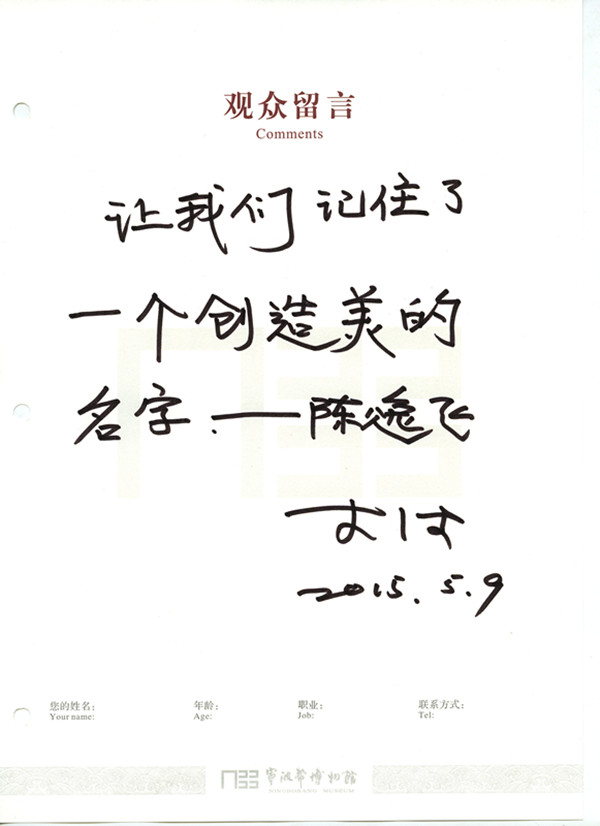 观众留言
Comments
让我们记住了
一个创造美的
名字.——陈逸飞
2015.5.9
您的姓名: 年龄: 职业: 联系方式:
Your name: Age: Job: Tel:
宁波帮博物馆